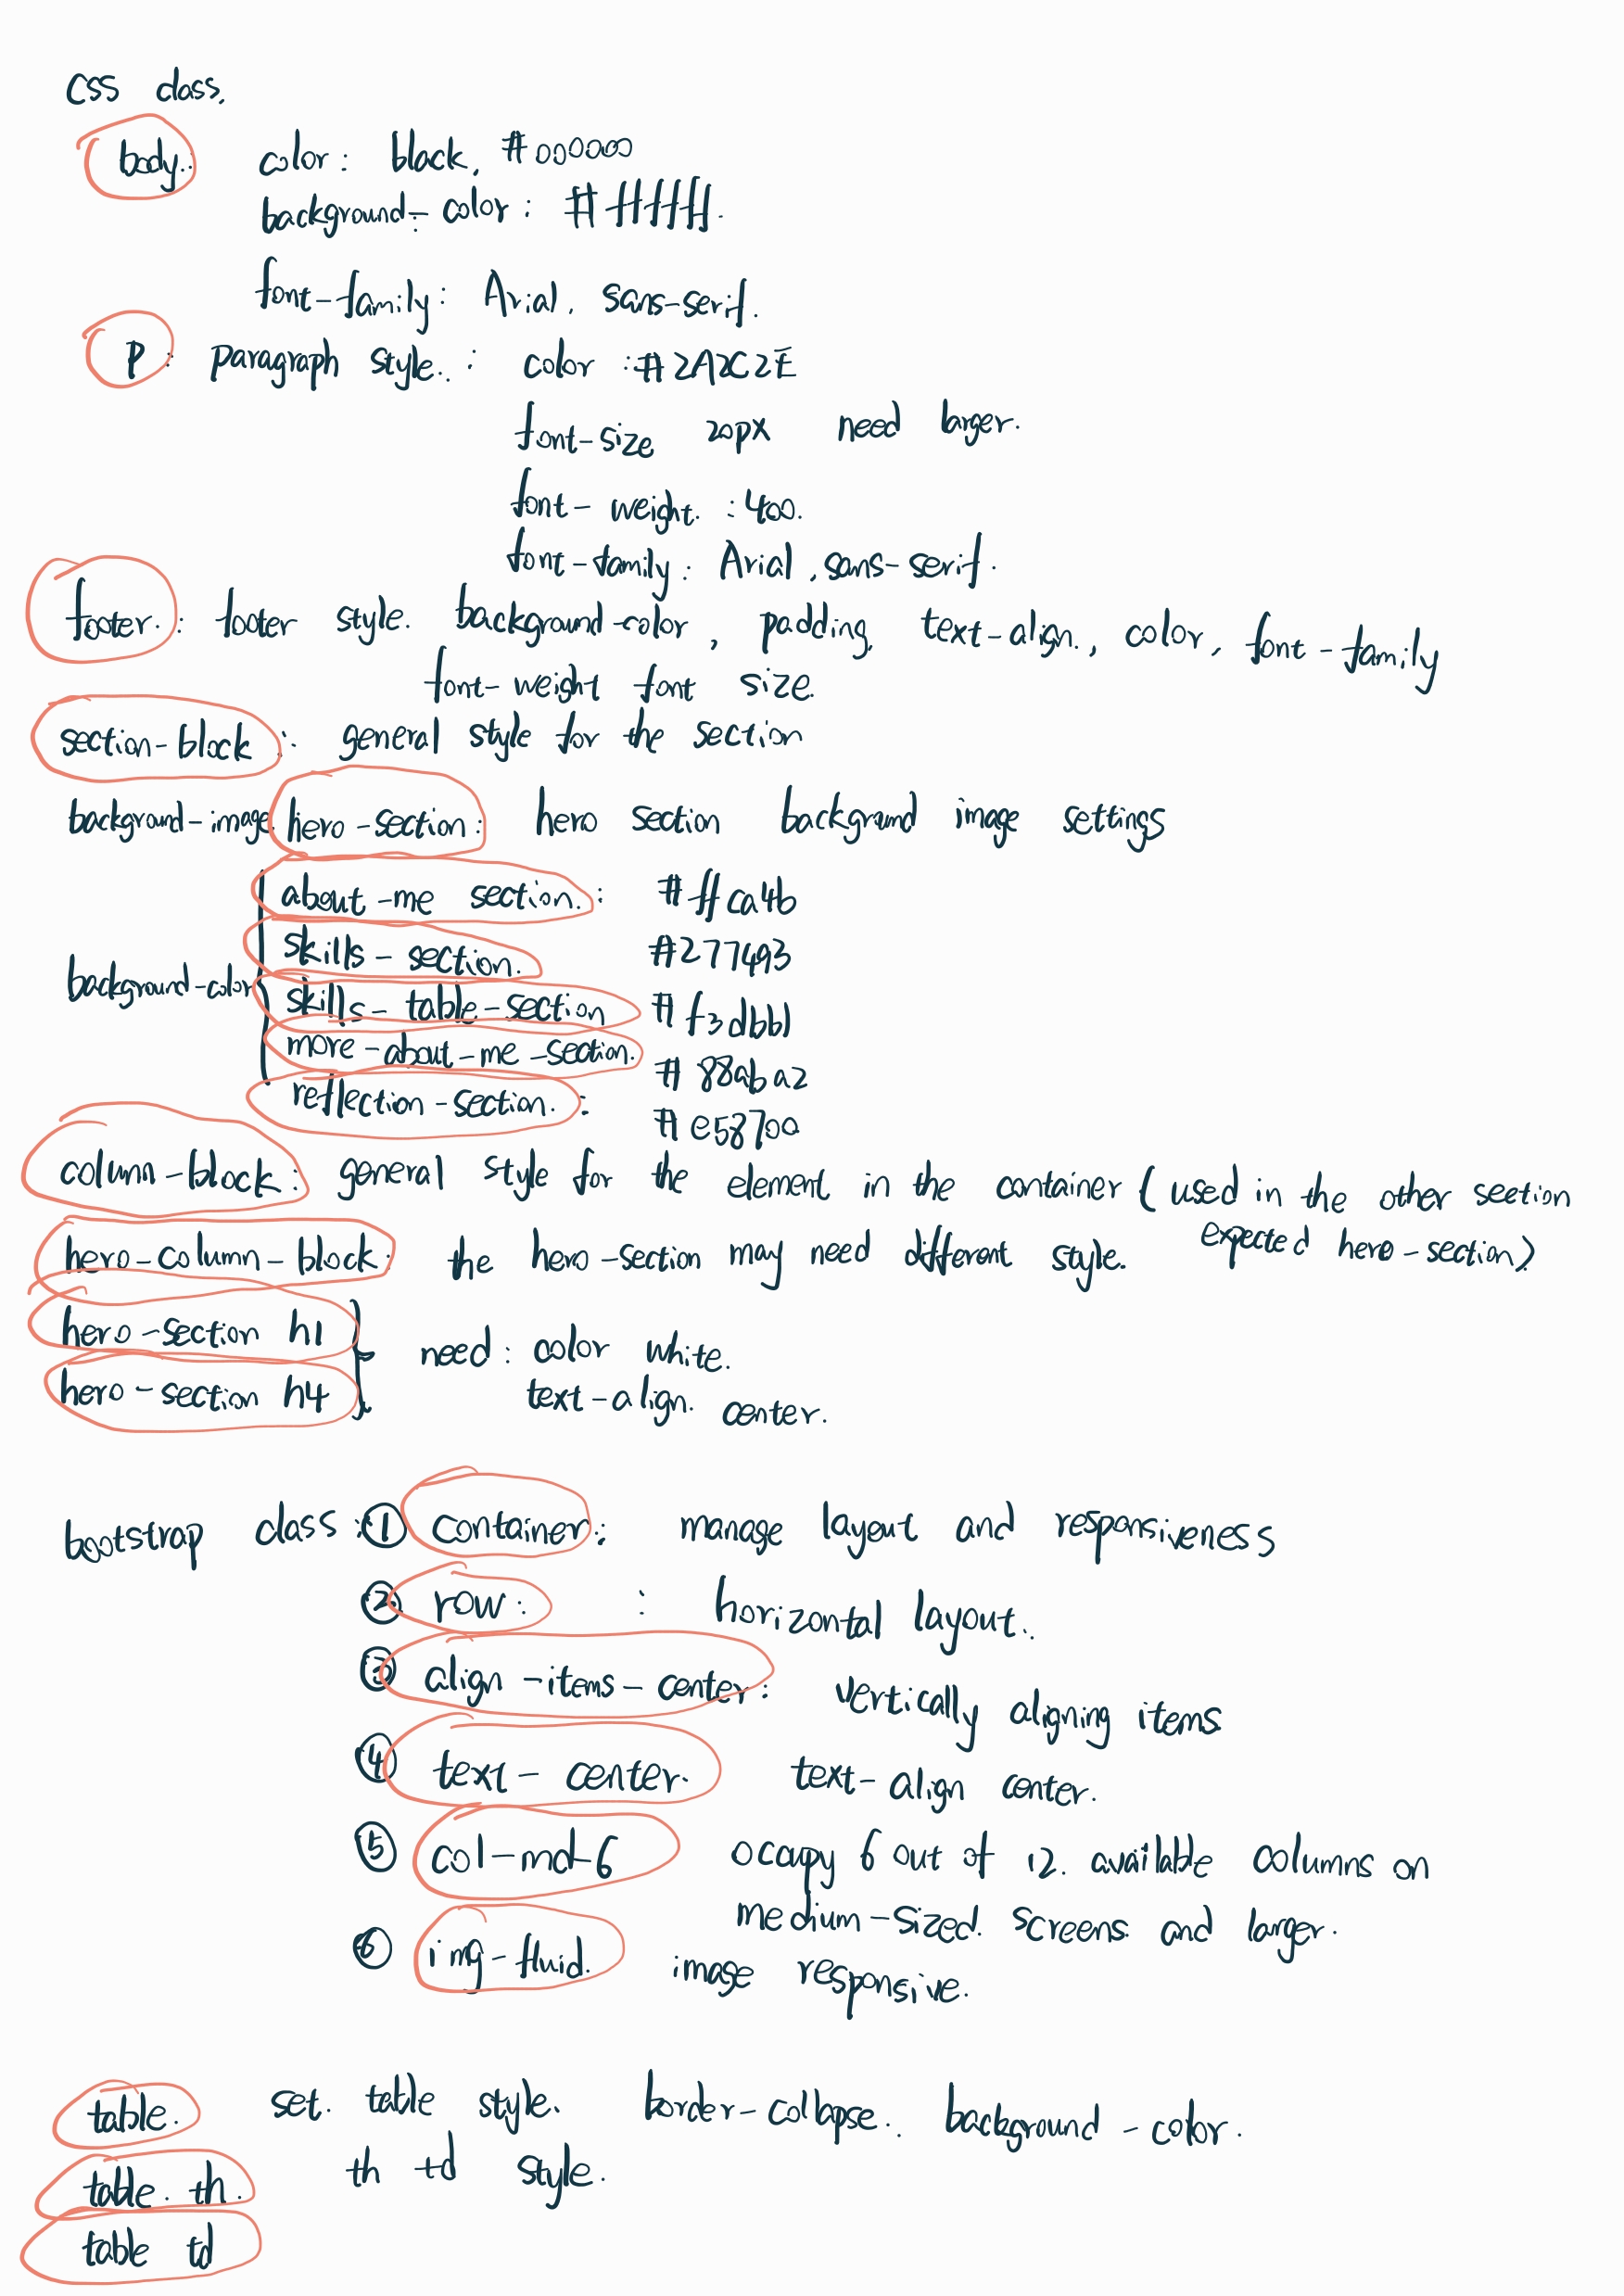 css class.
body: color: black, #000000
background-color: #ffffff.
font-family: Arial, sans-serif.
p: paragraph style.: color: #2A2C2E
font-size 20px need larger.
font-weight. :400.
font-family: Arial, sans-serif.
footer.: footer style. background-color, padding, text-align., color, font-family
font-weight font size.
section-block: general style for the section
background-image hero-section: hero section background image settings
about-me section.: #ffca4b
skills-section. #277493
background-color
skills-table-section #f3dbb1
more-about-me-section. #88aba2
reflection-section.: #e58700
column-block: general style for the element in the container (used in the other section
expected hero-section)
hero-column-block: the hero-section may need different style.
hero-section h1
need: color white.
hero-section h4
text-align. center.
bootstrap class: ① container: manage layout and responsiveness
② row: : horizontal layout.
③ align-items-center: vertically aligning items
④ text-center. text-align center.
⑤ col-md-6 occupy 6 out of 12. available columns on
medium-sized. screens and larger.
⑥ img-fluid. image responsive.
table. set. table style. border-collapse.. background-color.
table. th. th td style.
table td